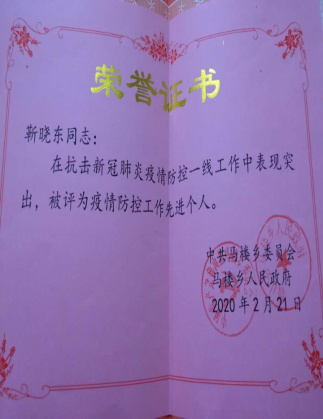 荣誉证书
靳晓东同志：
在抗击新冠肺炎疫情防控一线工作中表现突
出，被评为疫情防控工作先进个人。
中共马楼乡委员会
马楼乡人民政府
2020年2月21日